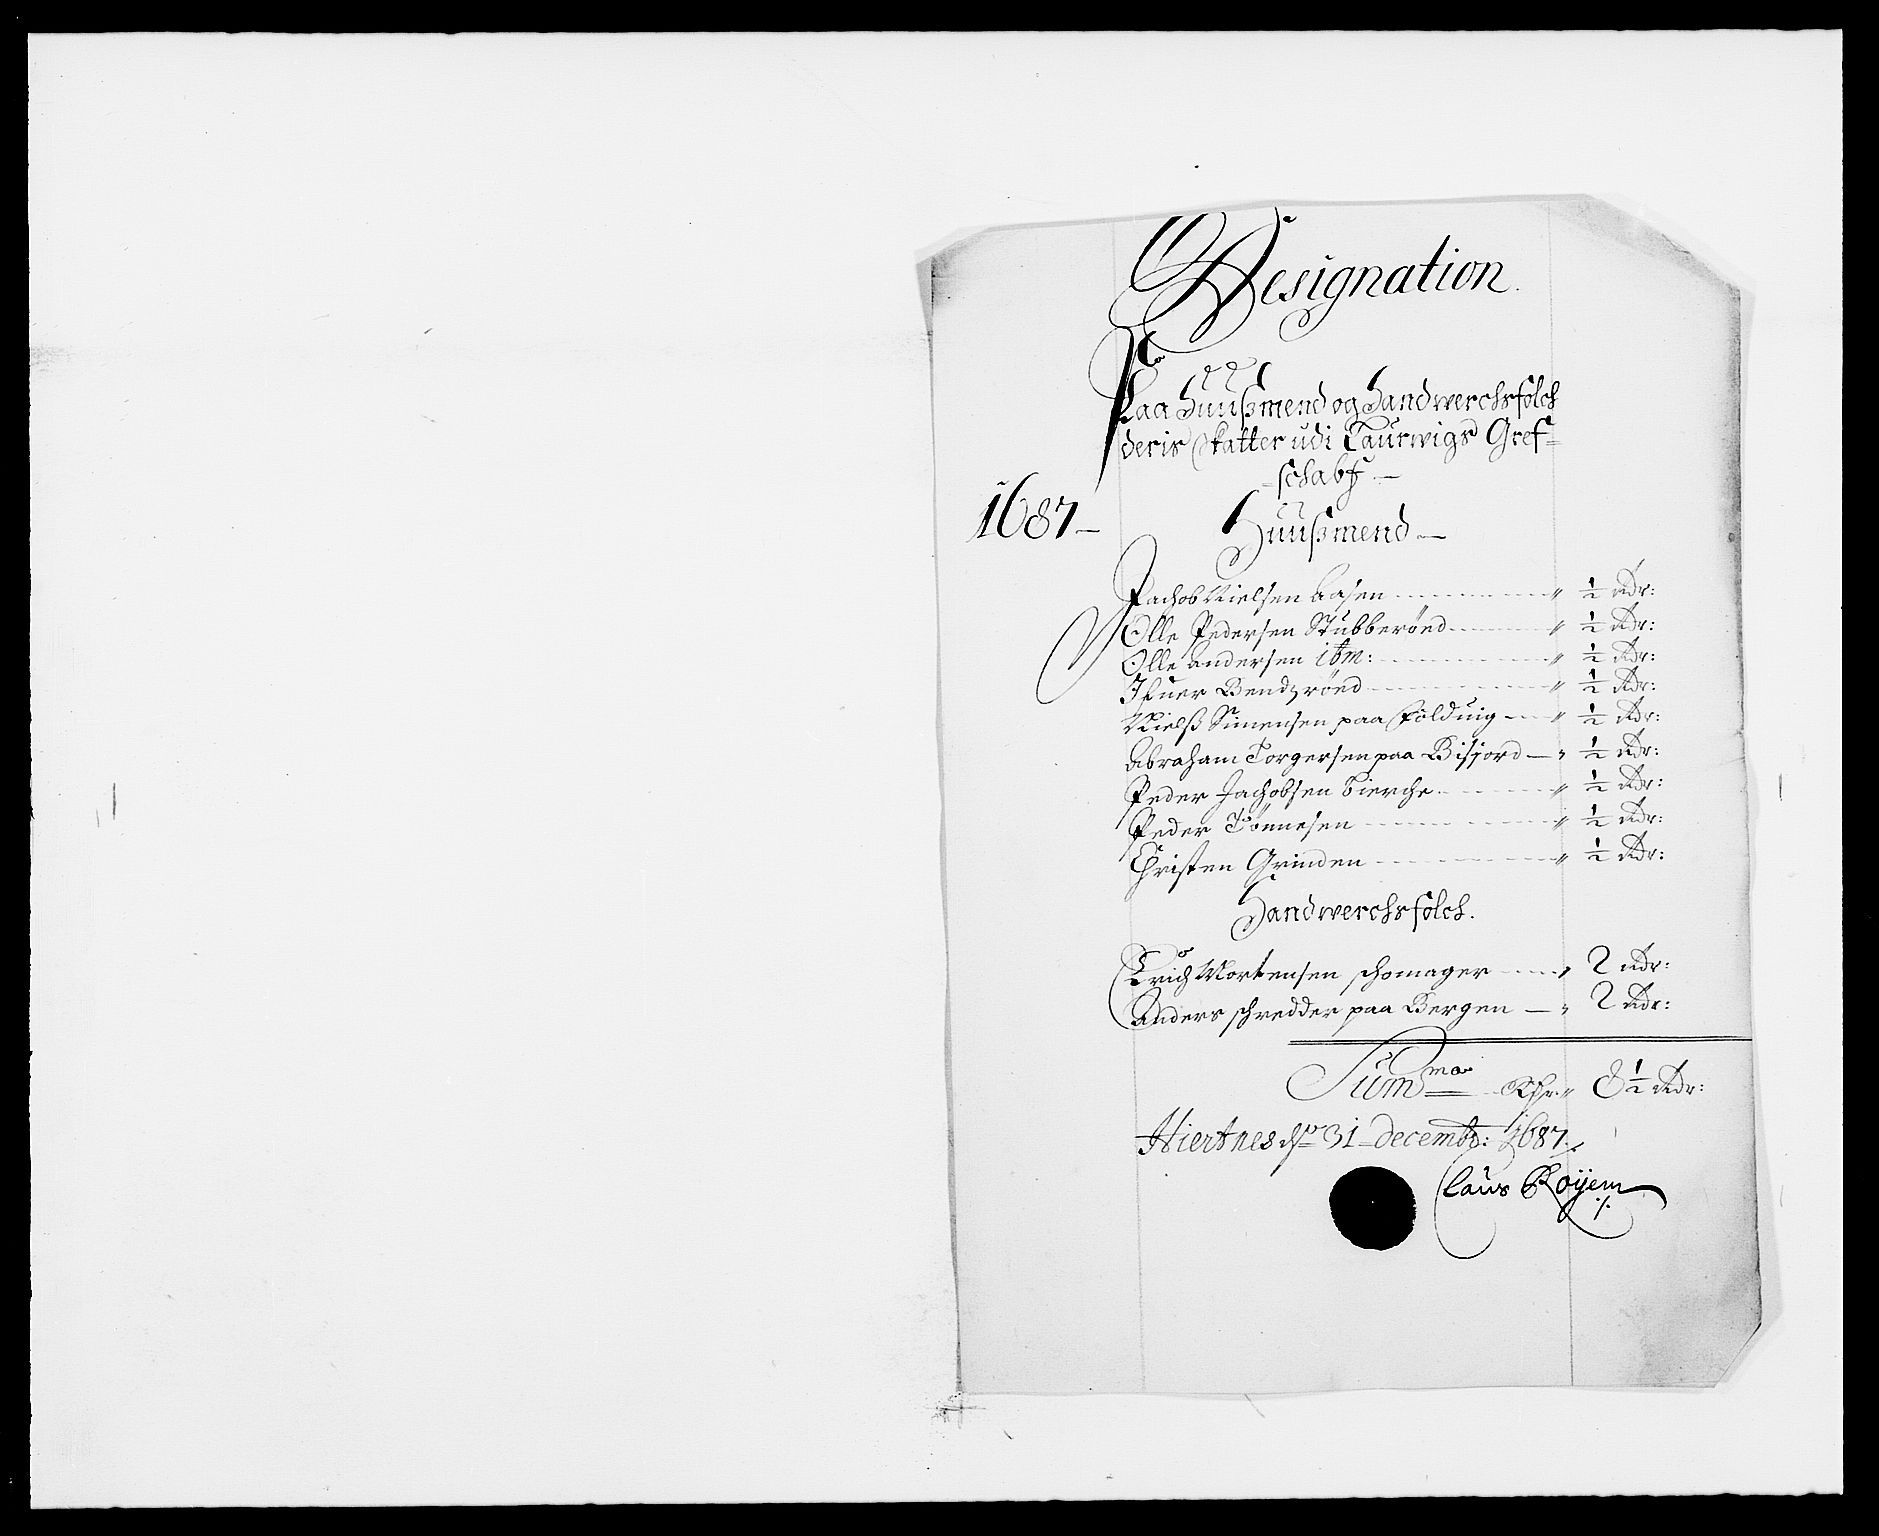 Designation.
Paa Huusmend og Handwerchsfolch
deris Skatter udi Laurwigs Gref=
=schabf.—
1687—
Huusmend—
Jachob Nielsen Aasen " ½ Rdr:
Olle Pedersen Stubberöed " ½ Rdr:
Olle Andersen ibm: " ½ Rdr:
Ifuer Bendzröed " ½ Rdr:
Nielß Simensen paa Folduig — " ½ Rdr:
Abraham Torgersen paa Bisjord — " ½ Rdr:
Peder Jachobsen Bierche " ½ Rdr:
Peder Tönnesen " ½ Rdr:
Christen Grinden " ½ Rdr:
Handwerchsfolch.
Erich Mortensen schomager " 2 Rdr:
Anders schredder paa Bergen — " 2 Rdr:
Summa " 8½ Rdr:
Hiertnes dn 31 decembr: 1687./.
Claus Röyem